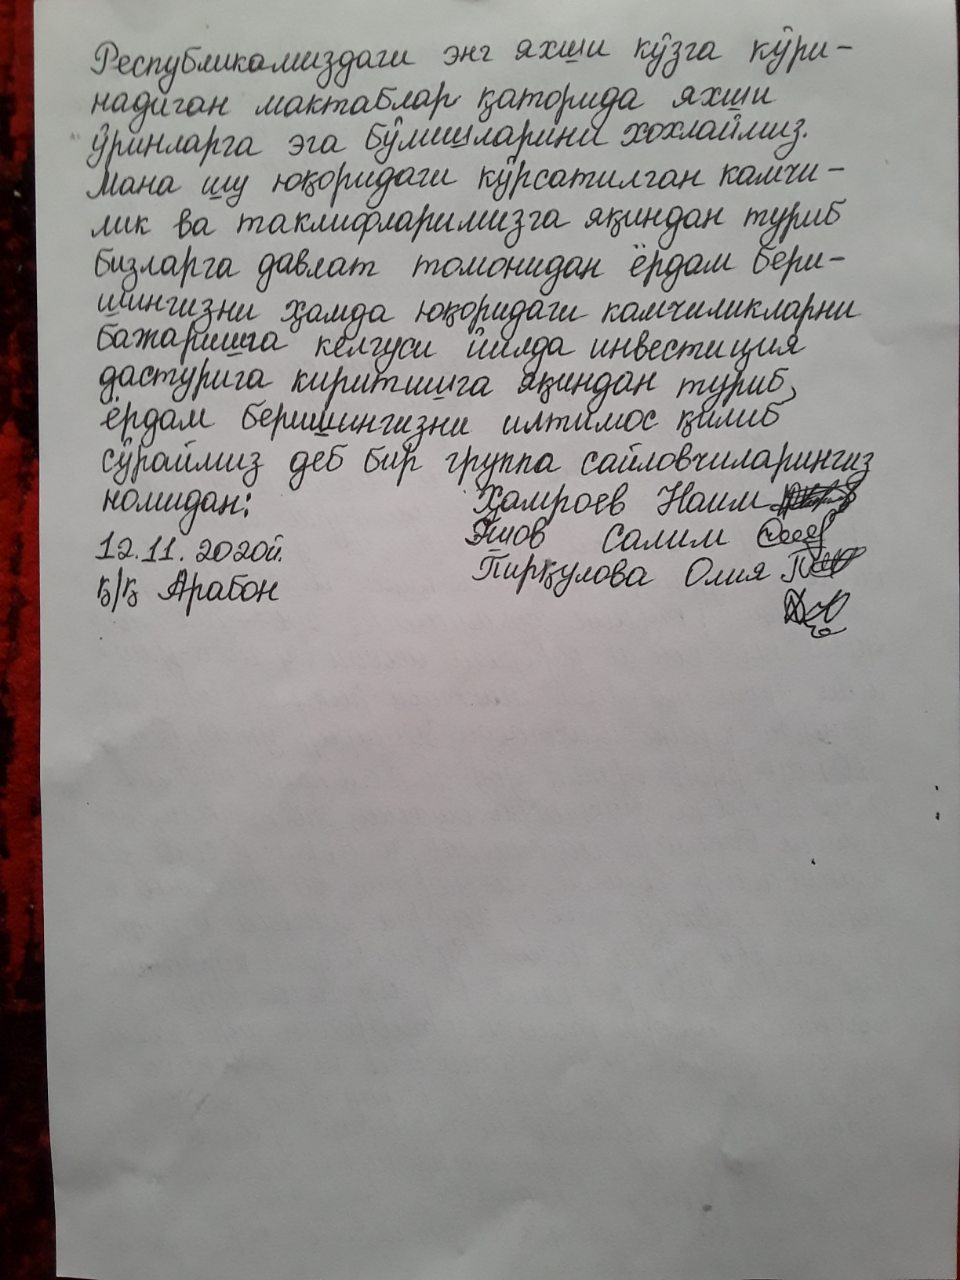 Республикамиздаги энг яхши кўзга кўри-
надиган мактаблар қаторида яхши
ўринларга эга бўлишларини хохлаймиз.
Мана шу юқоридаги кўрсатилган камчи-
лик ва таклифларимизга яқиндан туриб
бизларга давлат томонидан ёрдам бери-
шингизни ҳамда юқоридаги камчиликларни
бажаришга келгуси йилда инвестиция
дастурига киритишга яқиндан туриб,
ёрдам беришингизни илтимос қилиб
сўраймиз деб бир группа сайловчиларингиз
номидан: Ҳамроев Наим
12.11.2020й. Эшов Салим
қ/қ Арабон Пирқулова Олия